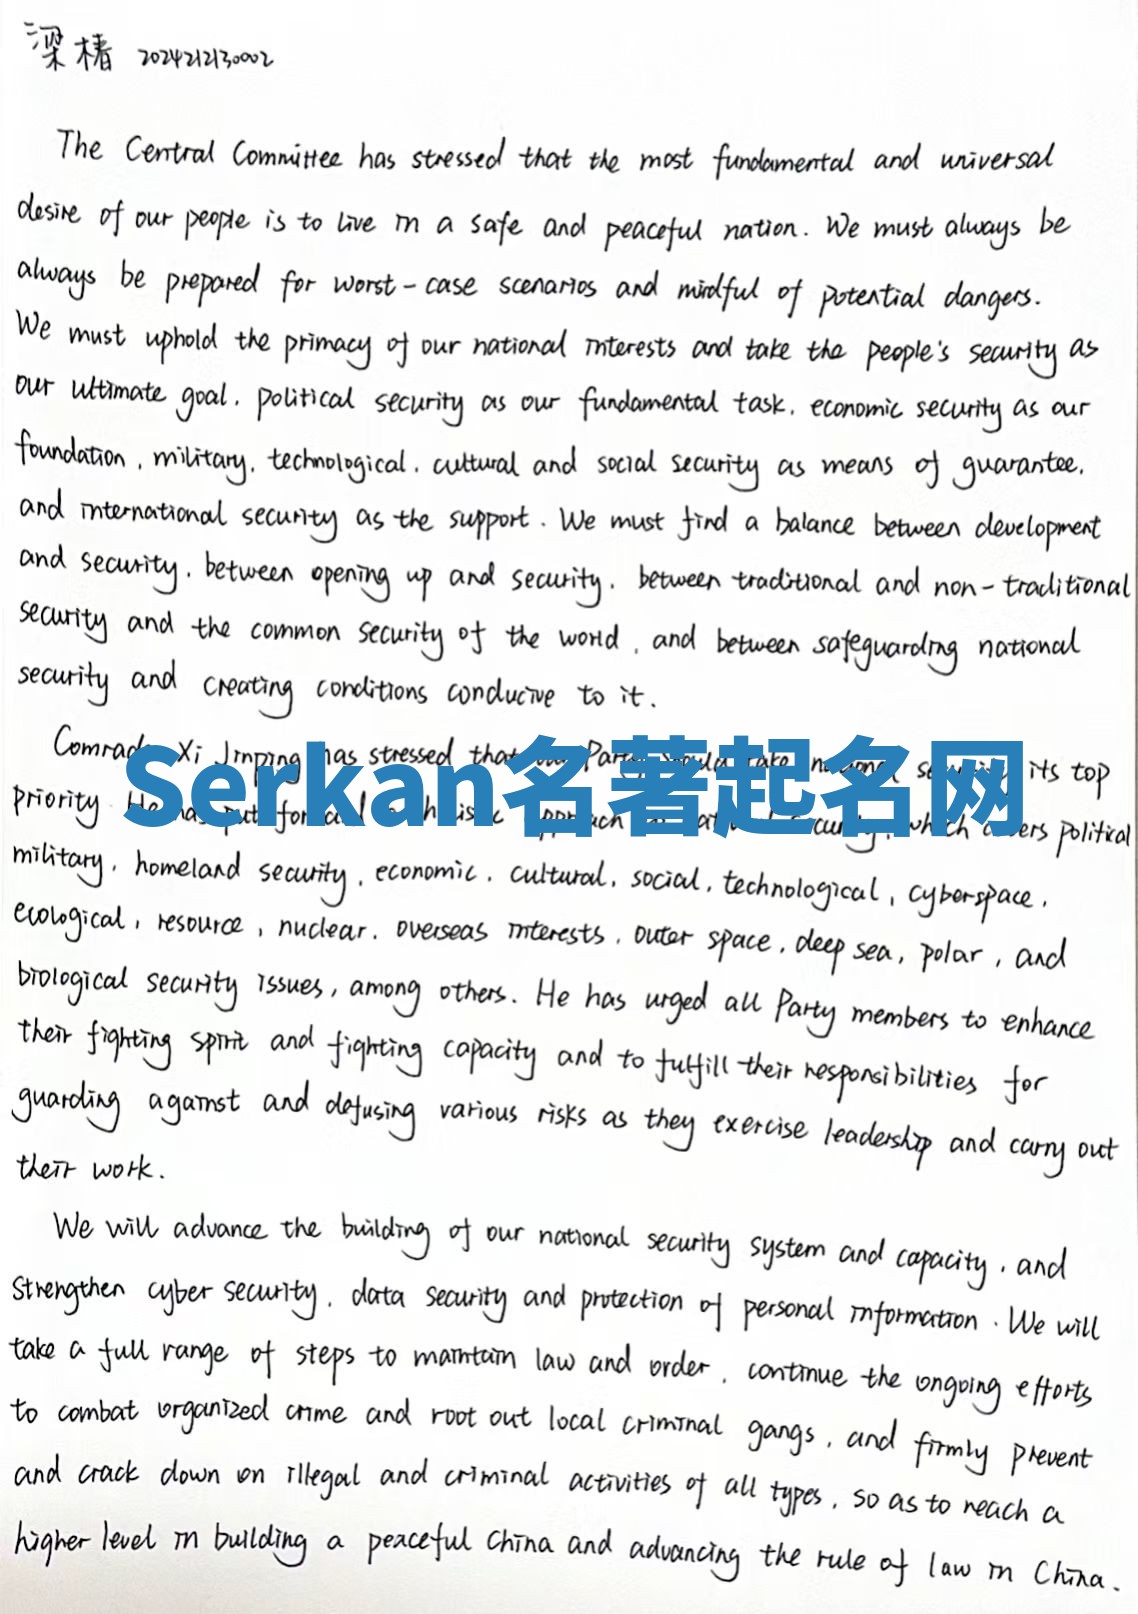 梁椿 2024212130002
The Central Committee has stressed that the most fundamental and universal
desire of our people is to live in a safe and peaceful nation. We must always be
always be prepared for worst-case scenarios and mindful of potential dangers.
We must uphold the primacy of our national interests and take the people's security as
our ultimate goal, political security as our fundamental task, economic security as our
foundation, military, technological, cultural and social security as means of guarantee,
and international security as the support. We must find a balance between development
and security, between opening up and security, between traditional and non-traditional
security and the common security of the world, and between safeguarding national
security and creating conditions conducive to it.
Comrade Xi Jinping has stressed that Party its top
priority. He has put which covers political
Serkan名著起名网
military, homeland security, economic, cultural, social, technological, cyberspace,
ecological, resource, nuclear, overseas interests, outer space, deep sea, polar, and
biological security issues, among others. He has urged all Party members to enhance
their fighting spirit and fighting capacity and to fulfill their responsibilities for
guarding against and defusing various risks as they exercise leadership and carry out
their work.
We will advance the building of our national security system and capacity, and
strengthen cyber security, data security and protection of personal information. We will
take a full range of steps to maintain law and order, continue the ongoing efforts
to combat organized crime and root out local criminal gangs, and firmly prevent
and crack down on illegal and criminal activities of all types, so as to reach a
higher level in building a peaceful China and advancing the rule of law in China.